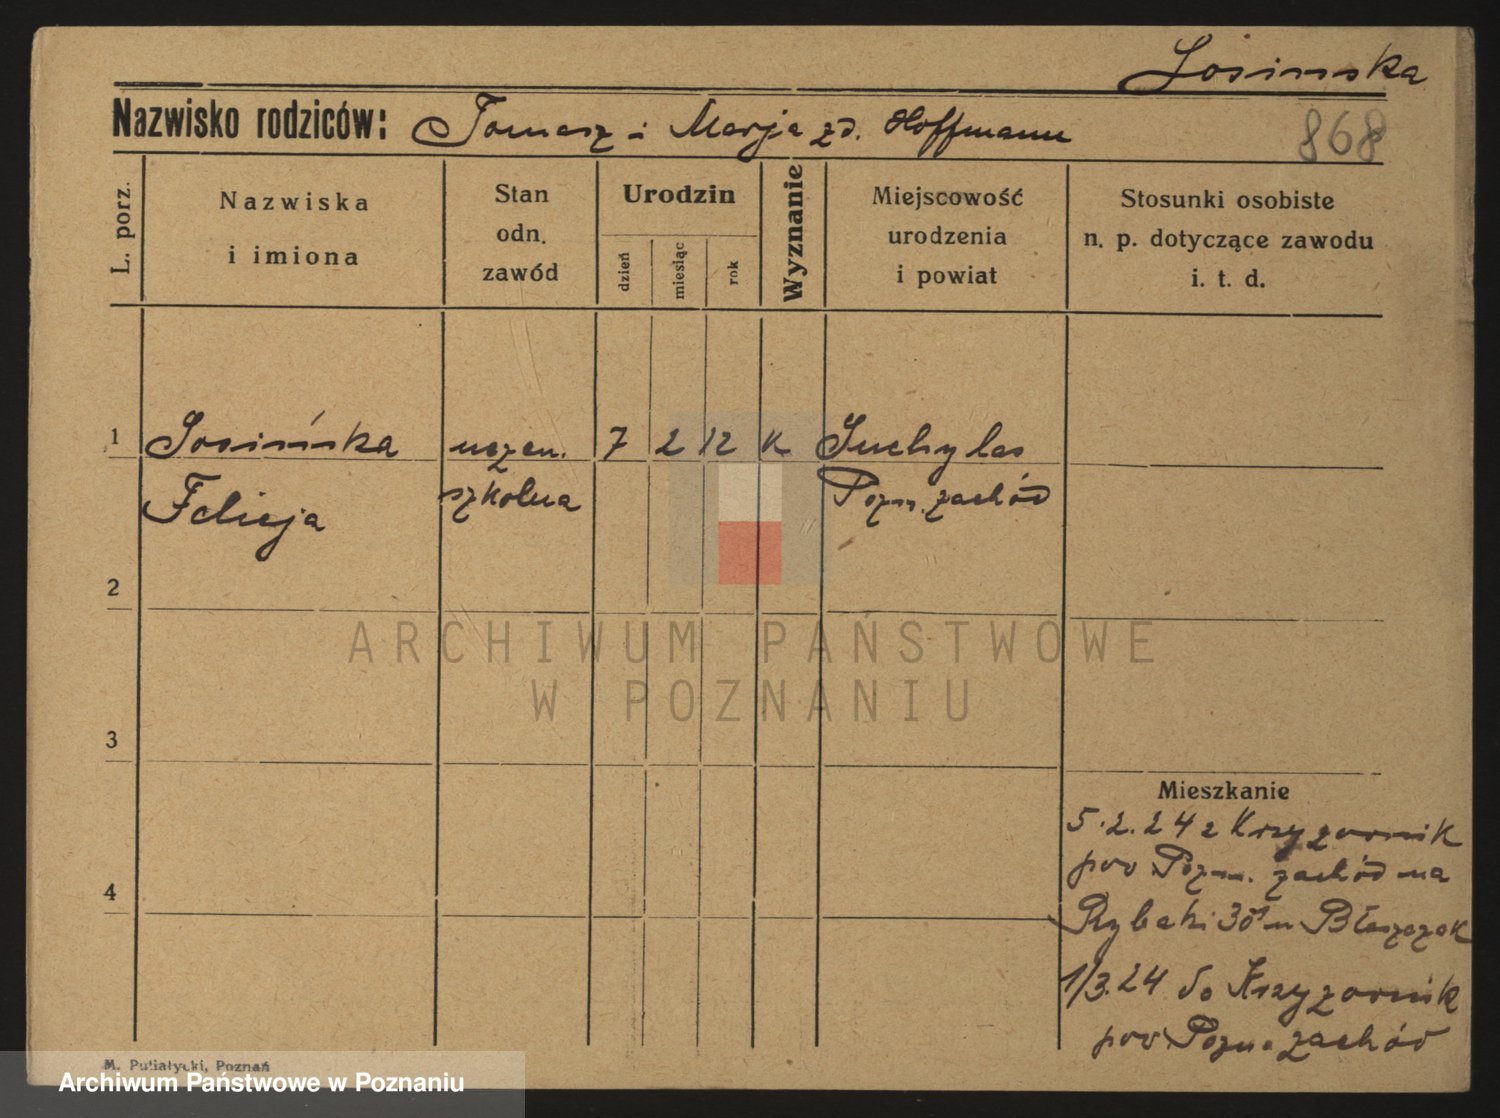 Losimska
Nazwisko rodziców: Tomasz i Marja zd. Hoffmann
868
L. porz.
Nazwiska
i imiona
Stan
odn.
zawód
Urodzin
dzień
miesiąc
rok
Wyznanie
Miejscowość
urodzenia
i powiat
Stosunki osobiste
n. p. dotyczące zawodu
i. t. d.
1 Losimska uczen. 7 2 12 K Suchylas
Felicja szkolna Pozn. zachód
2
3
4
Mieszkanie
5.2.24 z Krzyzownik
pow Pozn. zachód na
Rybaki 38 u Błaszczak
1/3.24 do Krzyzownik
pow Pozn. zachód
M. Putiatycki, Poznań
ARCHIWUM PAŃSTWOWE
W POZNANIU
Archiwum Państwowe w Poznaniu